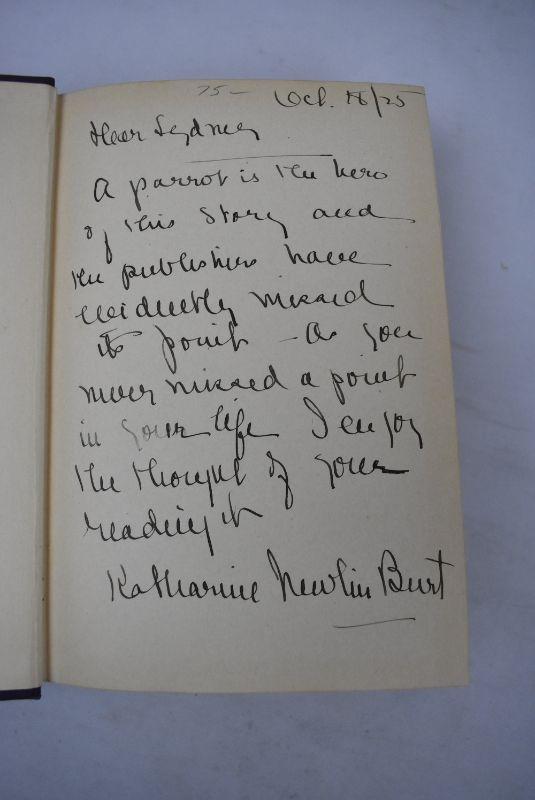 75-
Oct. 18/25
Dear Sydney
A parrot is the hero
of this story and
the publishers have
evidently missed
its point - As you
never missed a point
in your life I enjoy
the thought of your
reading it
Katharine Newlin Burt